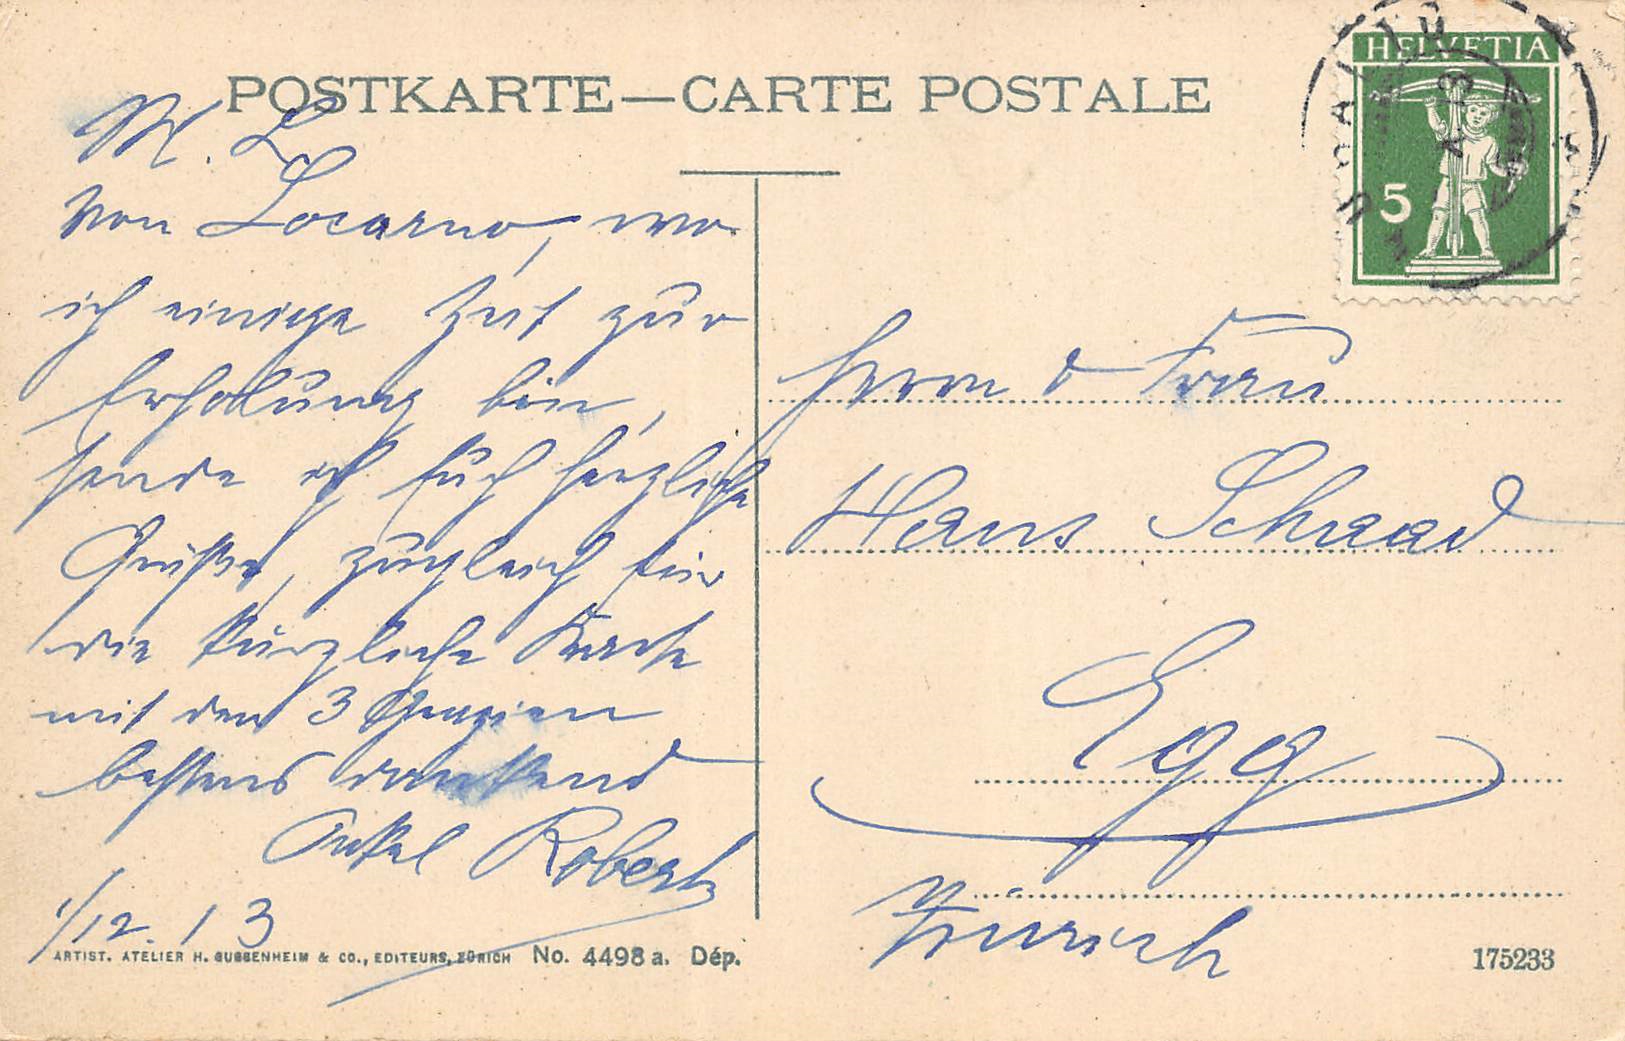 POSTKARTE — CARTE POSTALE
HELVETIA
5
M. L.
Von Locarno, wo
ich einige Zeit zur
Erholung bin,
sende ich Euch herzliche
Grüße, zugleich für
die kürzliche Karte
mit den 3
bestens dankend
Onkel Robert
1/12. 13
Herrn & Frau
Hans Schaad
Egg
Zürich
ARTIST. ATELIER H. GUGGENHEIM & CO., EDITEURS, ZÜRICH No. 4498 a. Dép.
175233